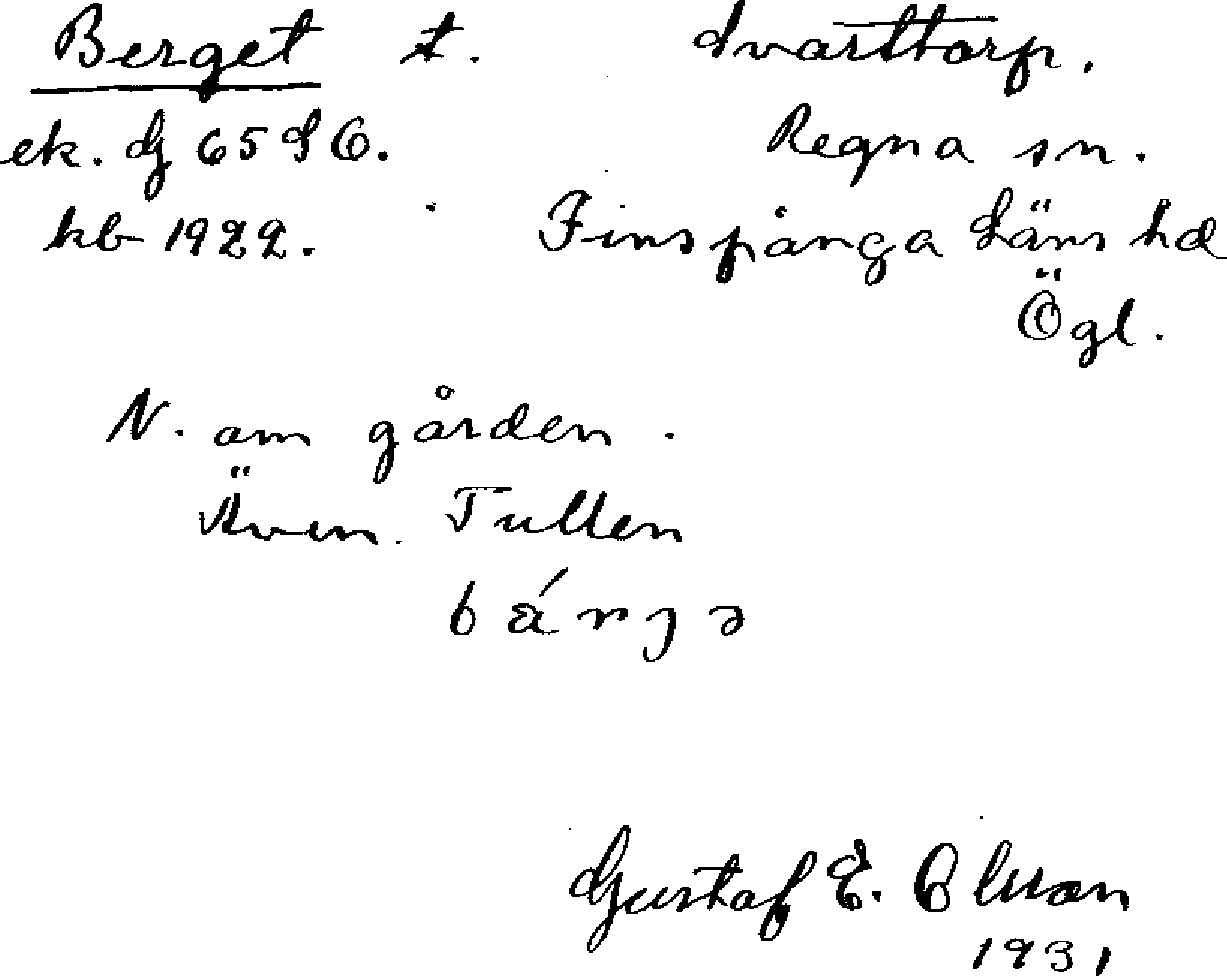 Berget t. Svarttorp.
ek. G 65 S Ö. Regna sn.
kb 1922. Finspånga läns hd
Ögl.
N. om gården.
Även. Tullen
bárjə
Gustaf E. Olsson
1931